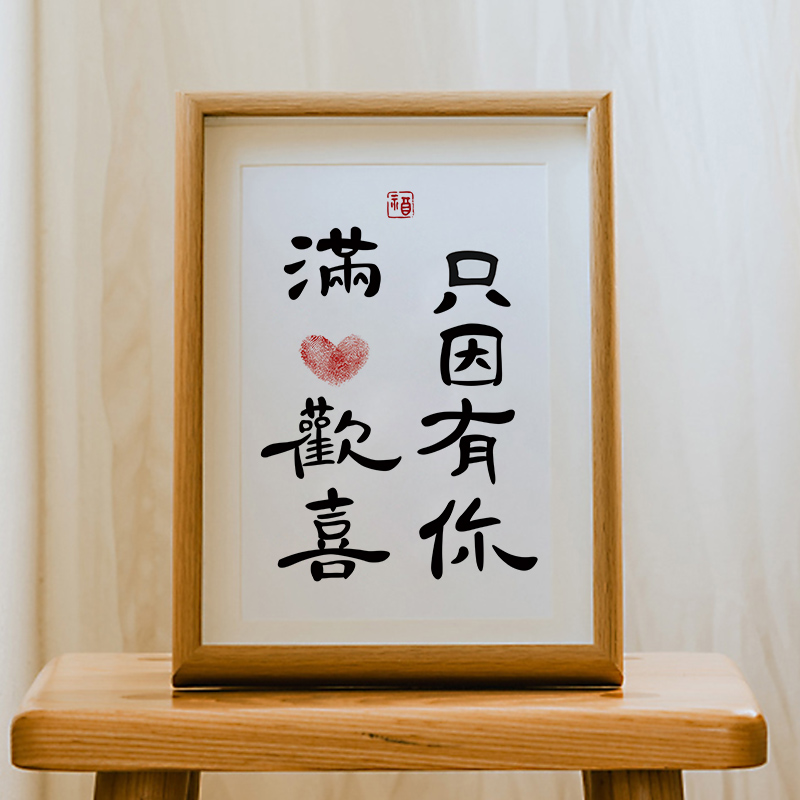 只因有你
滿❤歡喜